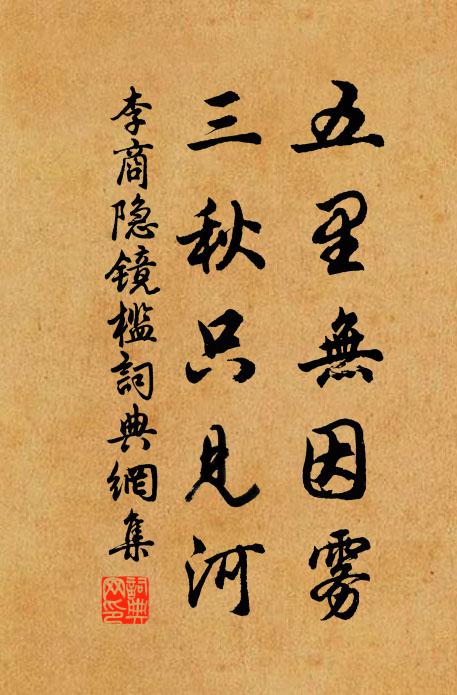 五里無因雾
三秋只见河
李商隐镜槛詞典網集
詞典网印